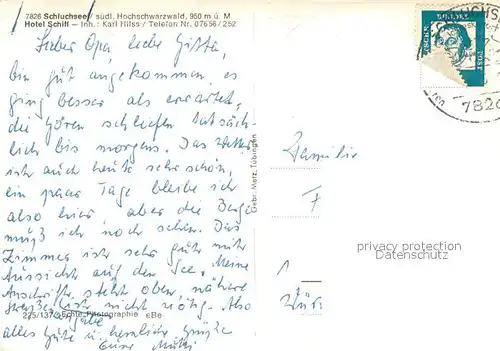 7826 Schluchsee / südl. Hochschwarzwald, 950 m ü. M.
Hotel Schiff – Inh.: Karl Nilss / Telefon Nr. 07656 / 252
Lieber Opa, liebe Gitta,
bin gut angekommen, es
ging besser als erwartet,
die Gören schliefen tatsäch-
lich bis morgens. Das Wetter
ist auch heute sehr schön,
ein paar Tage bleibe ich
also hier, aber die Berge
muß ich noch sehen. Das
Zimmer ist sehr gut mit
Aussicht auf den See. Meine
Anschrift steht oben, nähere
ist nicht nötig. Also
225/137 Echte Photographie eBe
alles Gute u. herzliche Grüße
Eure Mutti
Gebr. Metz, Tübingen
Familie
F
privacy protection
Datenschutz
DEUTSCHE
7826